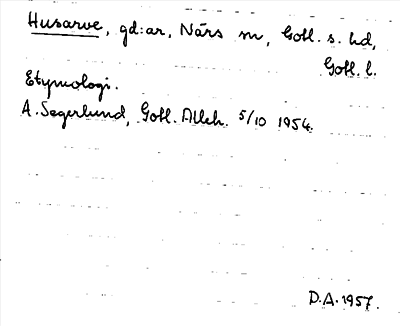 Husarve, gd:ar, Närs sn, Gotl. s. hd,
Gotl. l.
Etymologi.
A. Segerlund, Gotl. Alleh. 5/10 1954.
D.A. 1957.